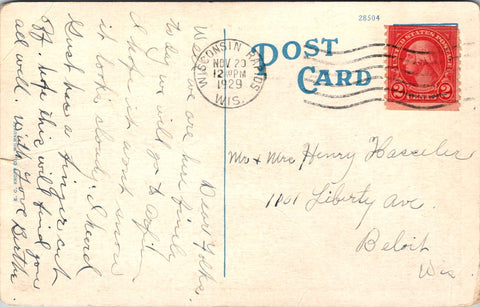 28504
POST
CARD
WISCONSIN RAPIDS
NOV 23
12 PM
1929
WIS.
UNITED STATES POSTAGE
2 2
Dear Folks.
Well we are here
to day we will go to
I hope it wont snow
it looks cloudy. I heard
Gust has a finger cut
off. hope this will find you
all well. With Love Bertha
Mr & Mrs Henry Hasseler
1101 Liberty Ave.
Beloit
Wis.